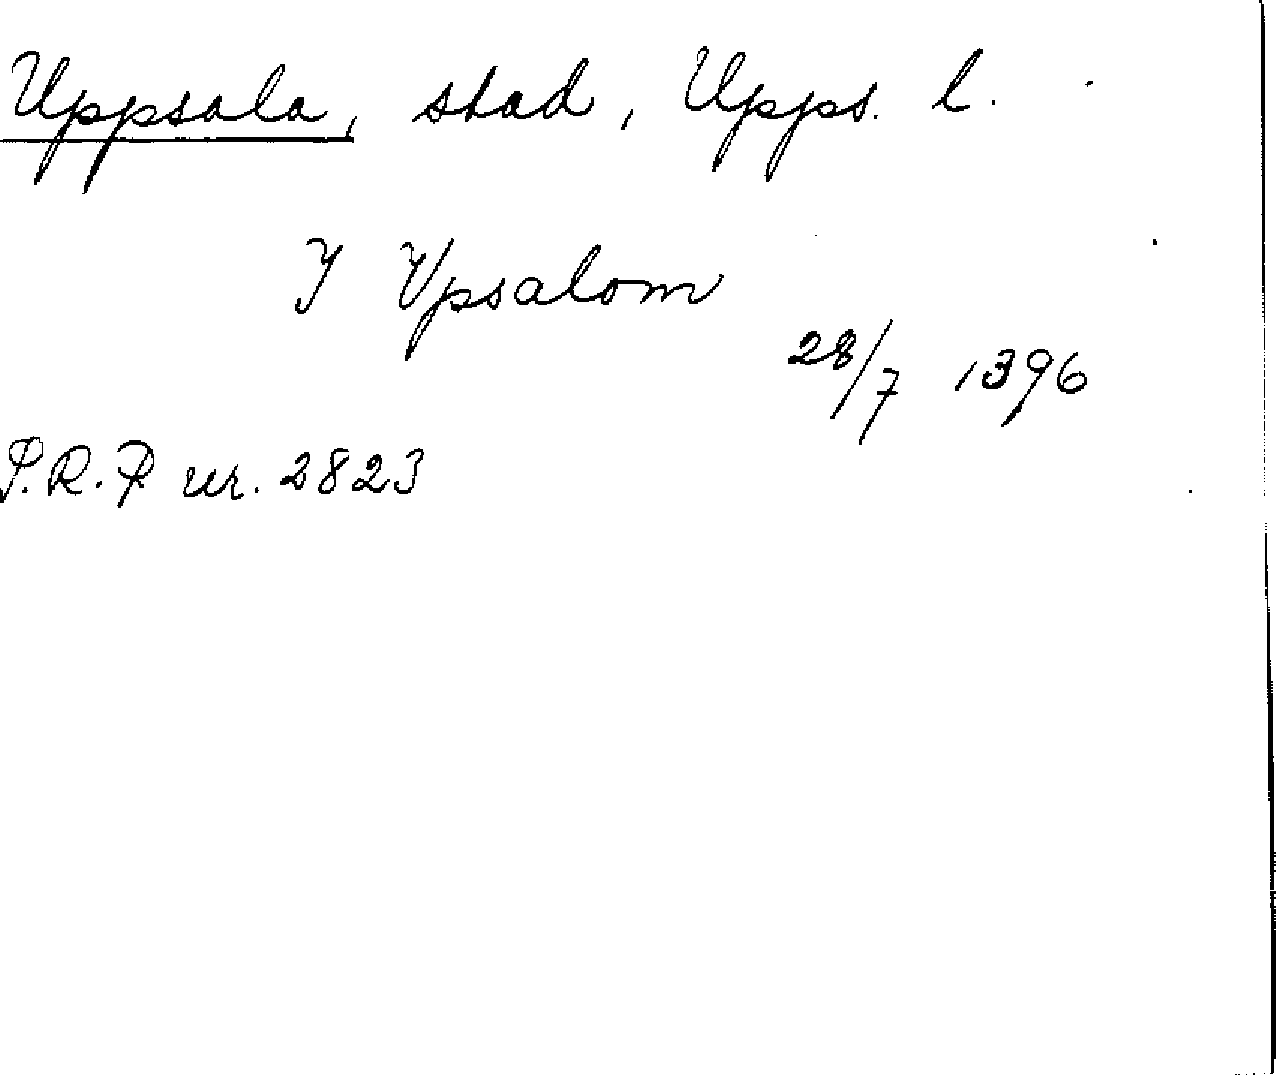 Uppsala, stad, Upps. l.
I Vpsalom
28/7 1396
P.R.P nr. 2823